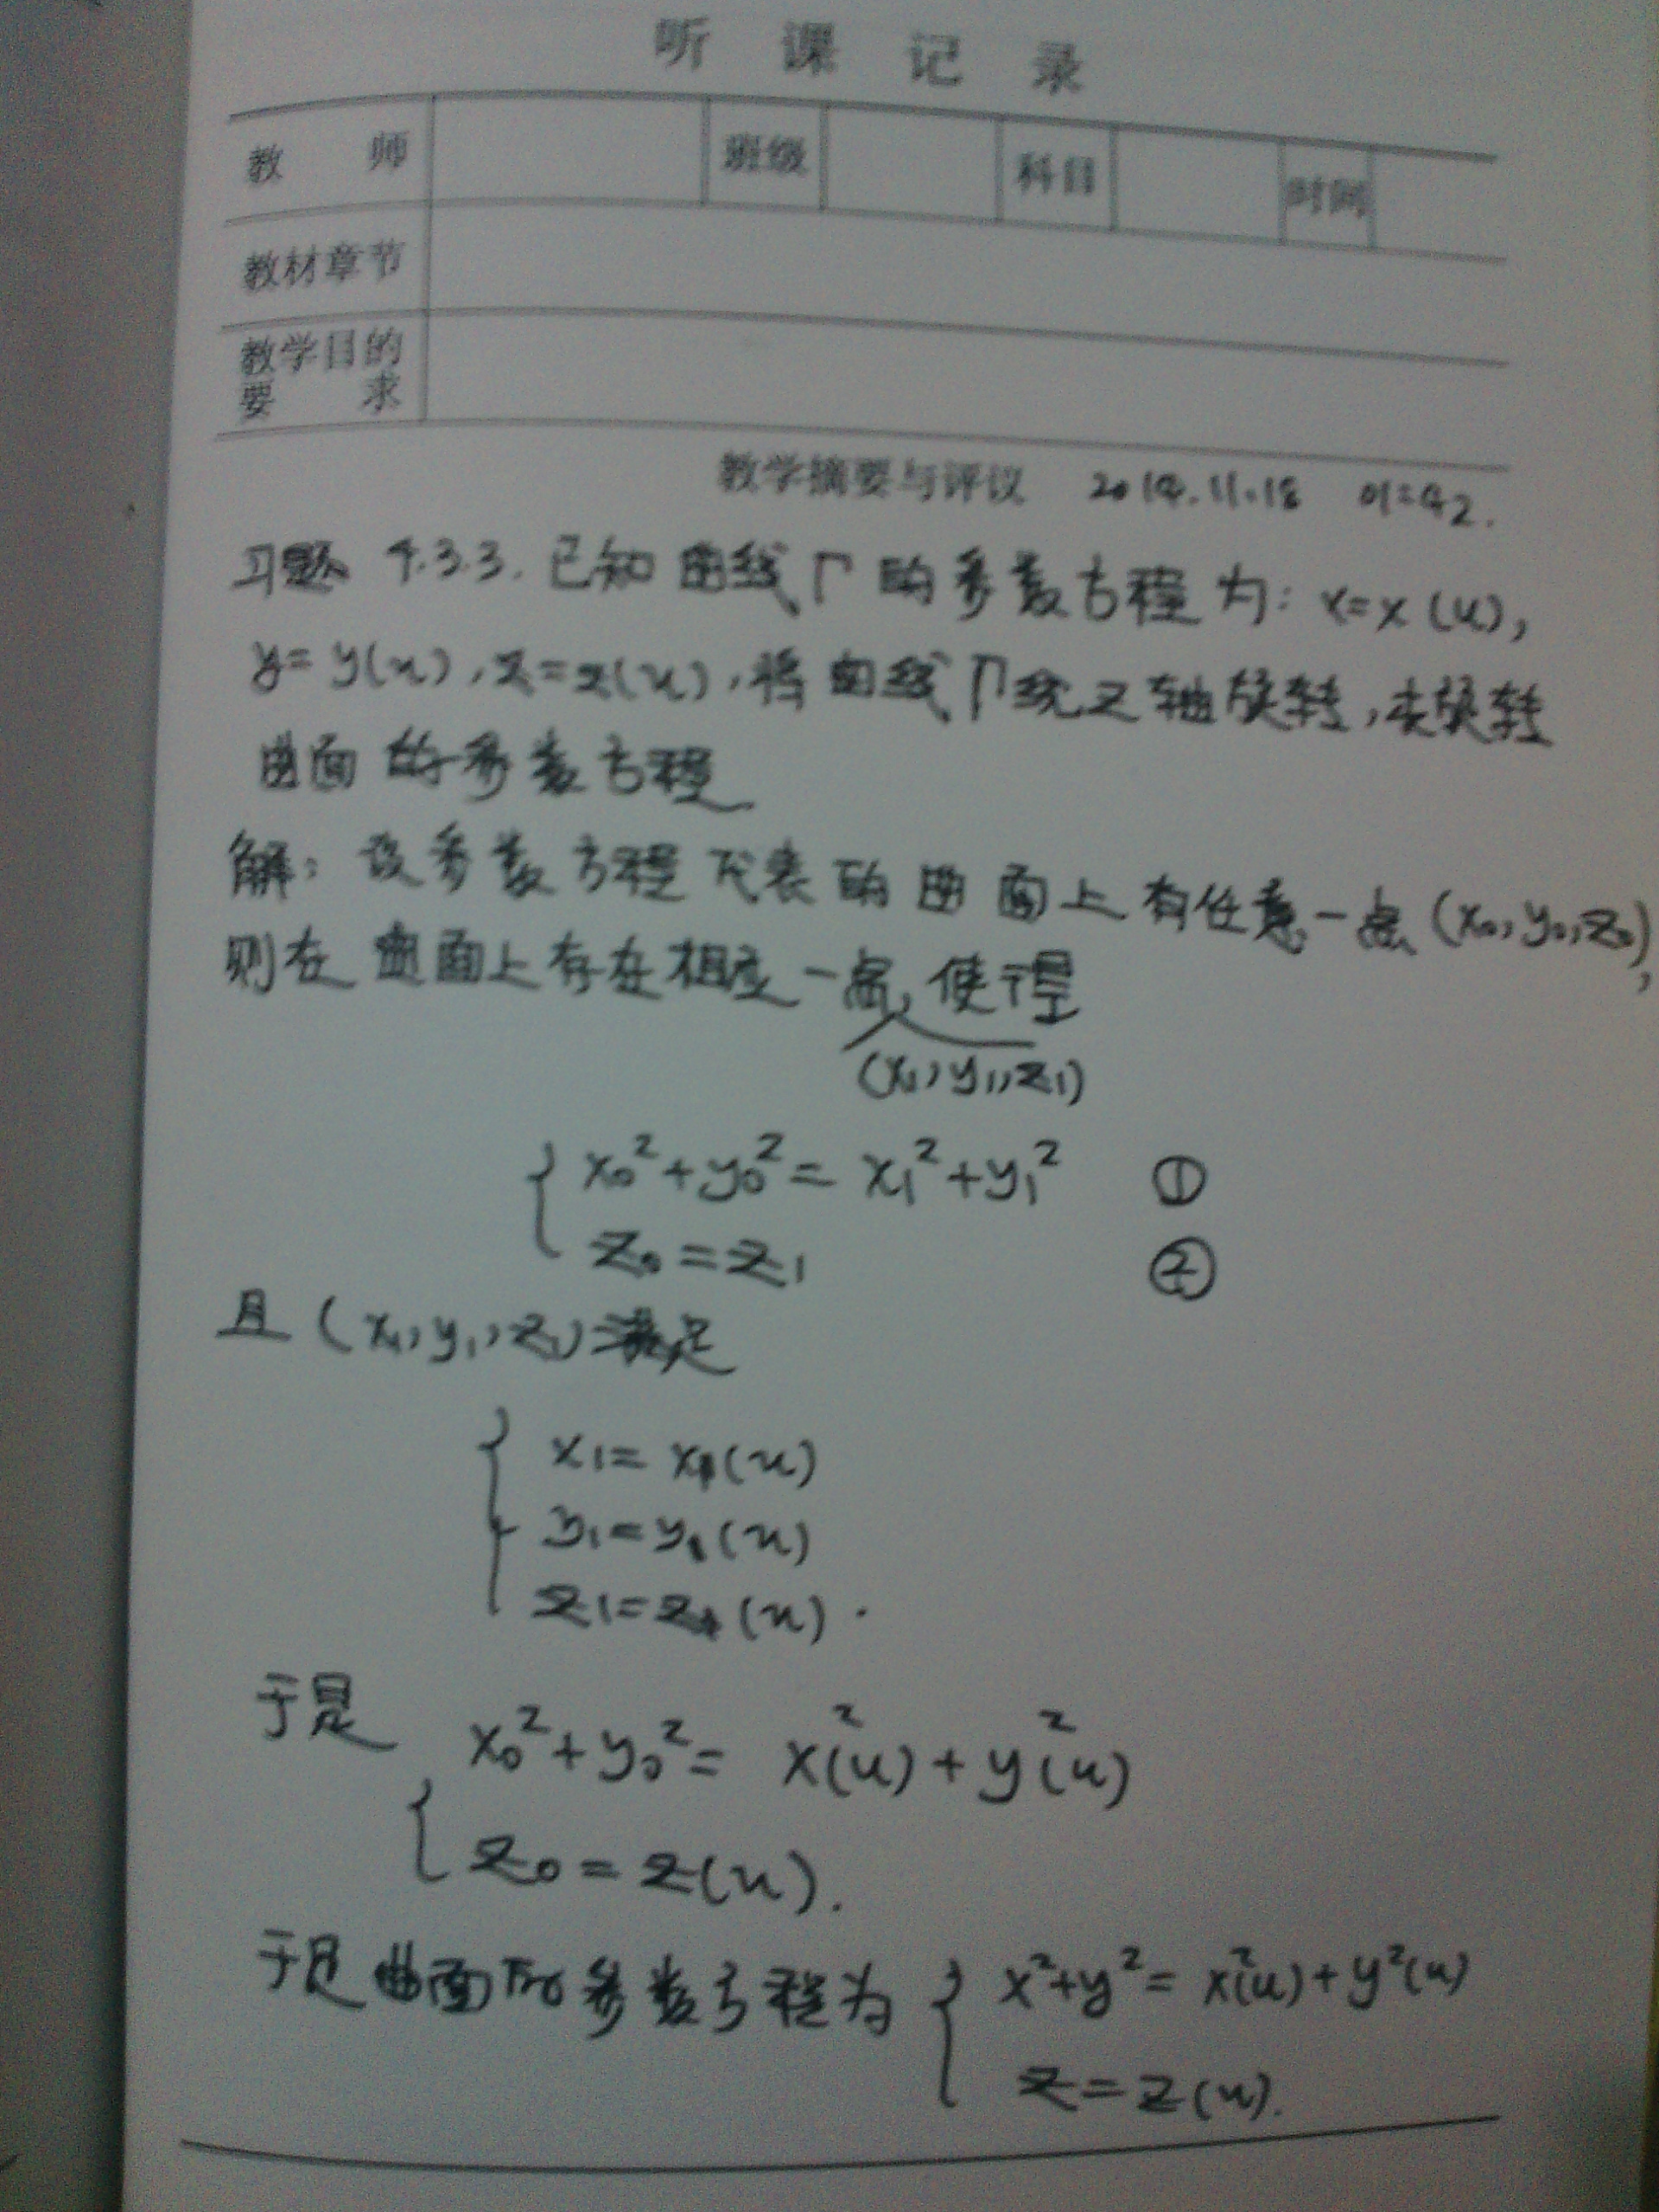 听 课 记 录
教 师 班级 科目 时间
教材章节
教学目的
要 求
教学摘要与评议 2014.11.18 01:42.
习题 4.3.3. 已知曲线Γ的参数方程为: x=x(u),
y=y(u), z=z(u), 将曲线Γ绕z轴旋转, 求旋转
曲面的参数方程
解: 设参数方程代表的曲面上有任意一点(x₀,y₀,z₀),
则在曲面上存在相应一点, 使得
(x₁,y₁,z₁)
x₀²+y₀²=x₁²+y₁² ①
z₀=z₁ ②
且(x₁,y₁,z₁)满足
x₁=x(u)
y₁=y(u)
z₁=z(u).
于是 x₀²+y₀²=x²(u)+y²(u)
z₀=z(u).
于是曲面的参数方程为 { x²+y²=x²(u)+y²(u)
z=z(u).